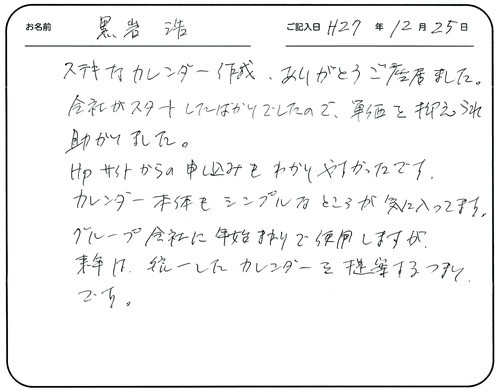 お名前 黒岩 浩 ご記入日 H27 年 12 月 25 日
ステキなカレンダー作成、ありがとうご座居ました。
会社がスタートしたばかりでしたので、単価を抑えられ
助かりました。
Hpサイトからの申し込みもわかりやすかったです.
カレンダー本体もシンプルなところが気に入ってます。
グループ会社に年始まわりで使用しますが、
来年は、統一したカレンダーを提案するつもり
です。